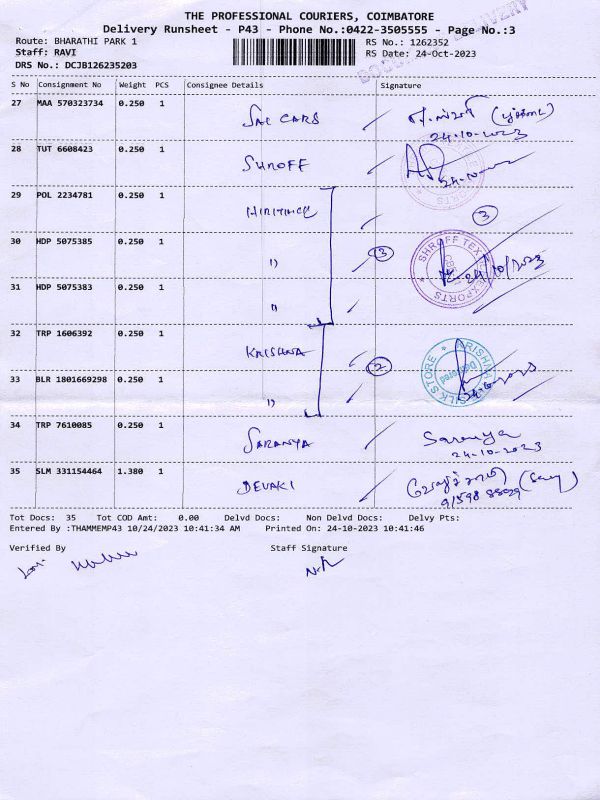 THE PROFESSIONAL COURIERS, COIMBATORE
Delivery Runsheet - P43 - Phone No.:0422-3505555 - Page No.:3
Route: BHARATHI PARK 1
RS No.: 1262352
Staff: RAVI
RS Date: 24-Oct-2023
DRS No.: DCJB126235203
S No Consignment No Weight PCS Consignee Details Signature
27 MAA 570323734 0.250 1 SAI CARS
24-10-2023
28 TUT 6608423 0.250 1 SHROFF
24-10-
29 POL 2234781 0.250 1 HIRITHIC 3
30 HDP 5075385 0.250 1 " 3 SHROFF TEX EXPORTS 24/10/2023
31 HDP 5075383 0.250 1 "
32 TRP 1606392 0.250 1 KRISHNA
33 BLR 1801669298 0.250 1 " 2 KRISHNA SILK STORE
34 TRP 7610085 0.250 1 SARANYA Saranya
24-10-2023
35 SLM 331154464 1.380 1 DEVAKI
Tot Docs: 35 Tot COD Amt: 0.00 Delvd Docs: Non Delvd Docs: Delvy Pts:
Entered By :THAMMEMP43 10/24/2023 10:41:34 AM Printed On: 24-10-2023 10:41:46
Verified By Staff Signature